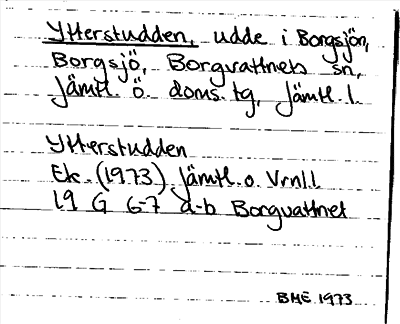 Ytterstudden, udde i Borgsjön,
Borgsjö, Borgvattnets sn,
Jämtl. Ö. doms. tg, Jämtl. l.
Ytterstudden
Ek. (1973) Jämtl. o. Vrnl.l
19 G 6-7 a-b Borgvattnet
BME 1973